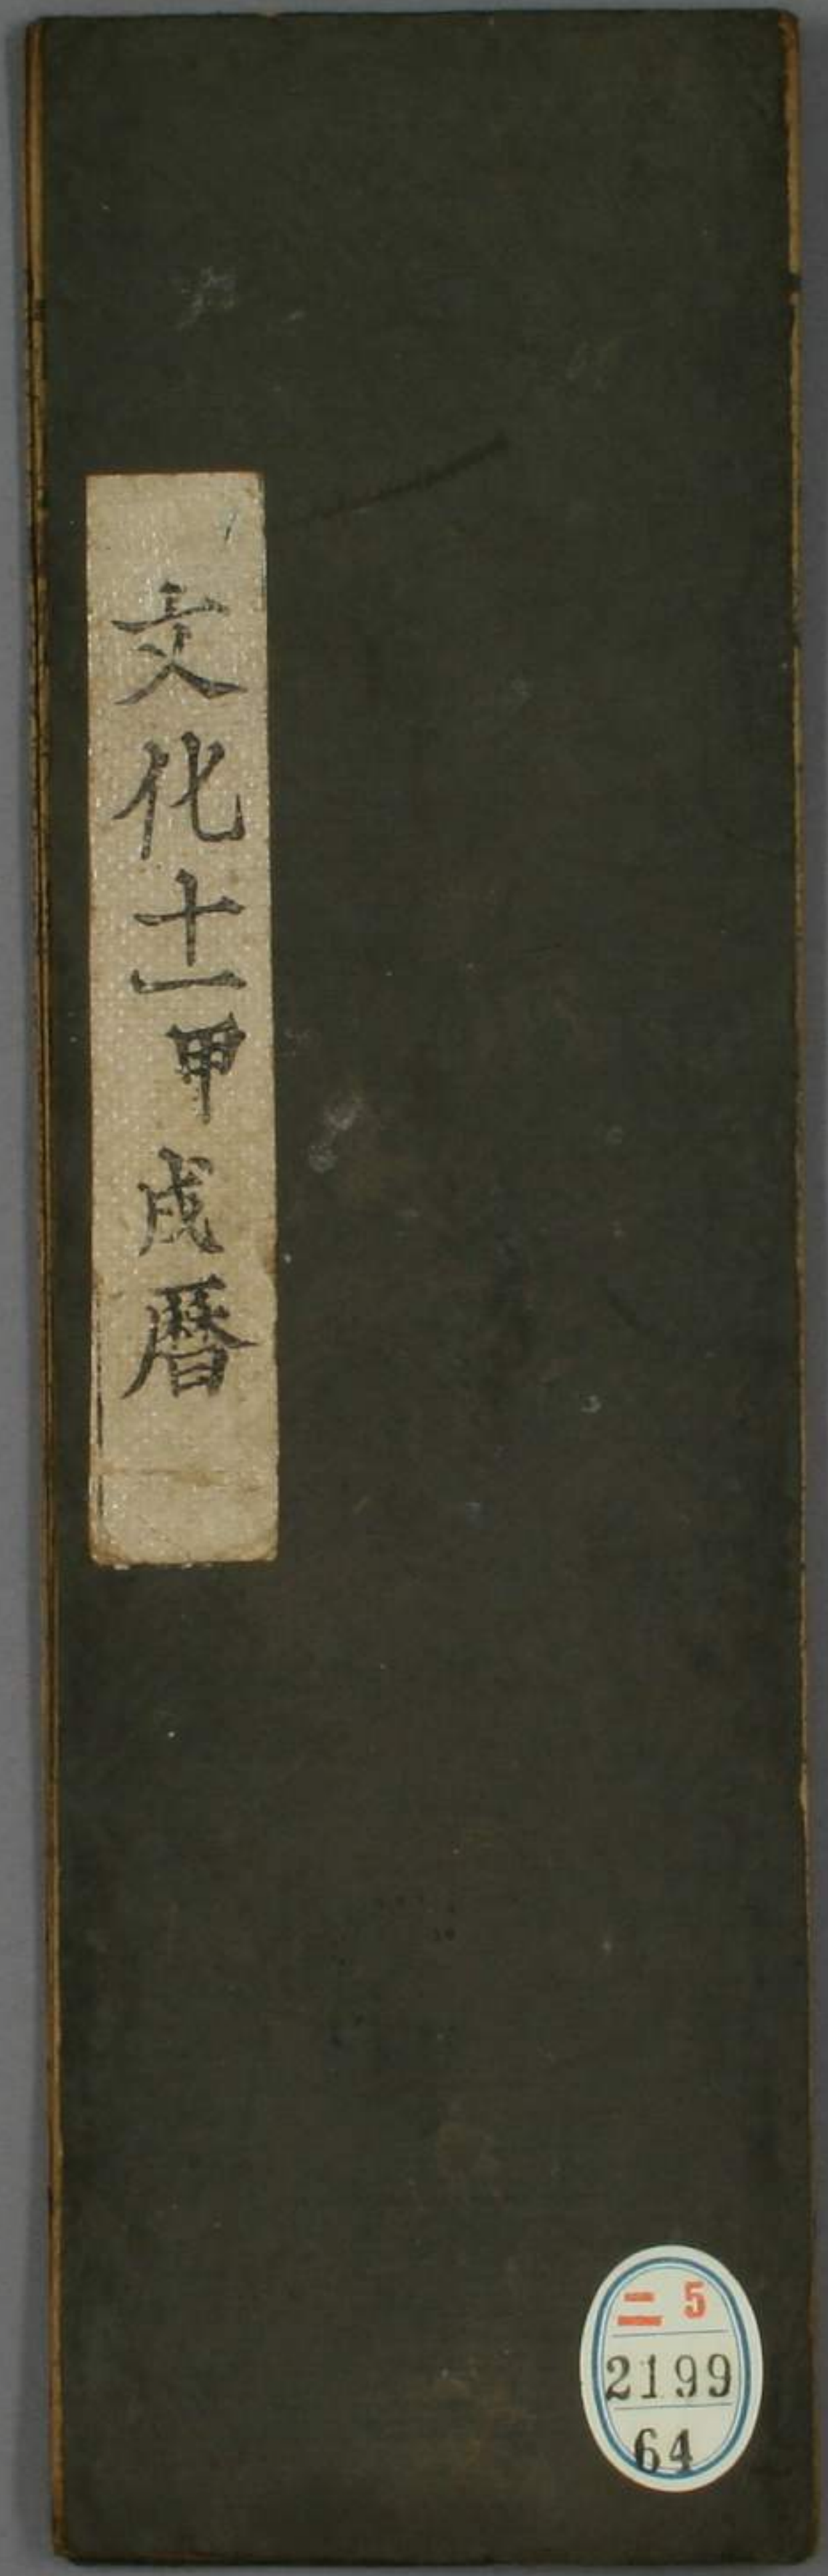 文化十一甲戌暦
二 5
2199
64